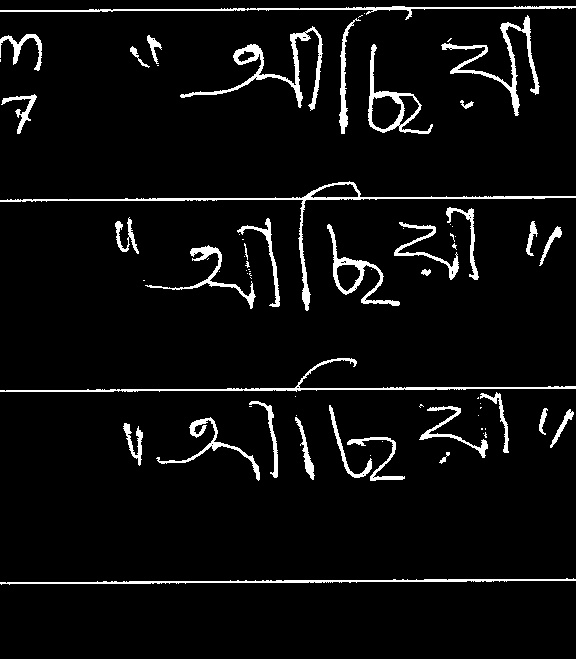 "আছিয়া
"আছিয়া"
"আছিয়া"